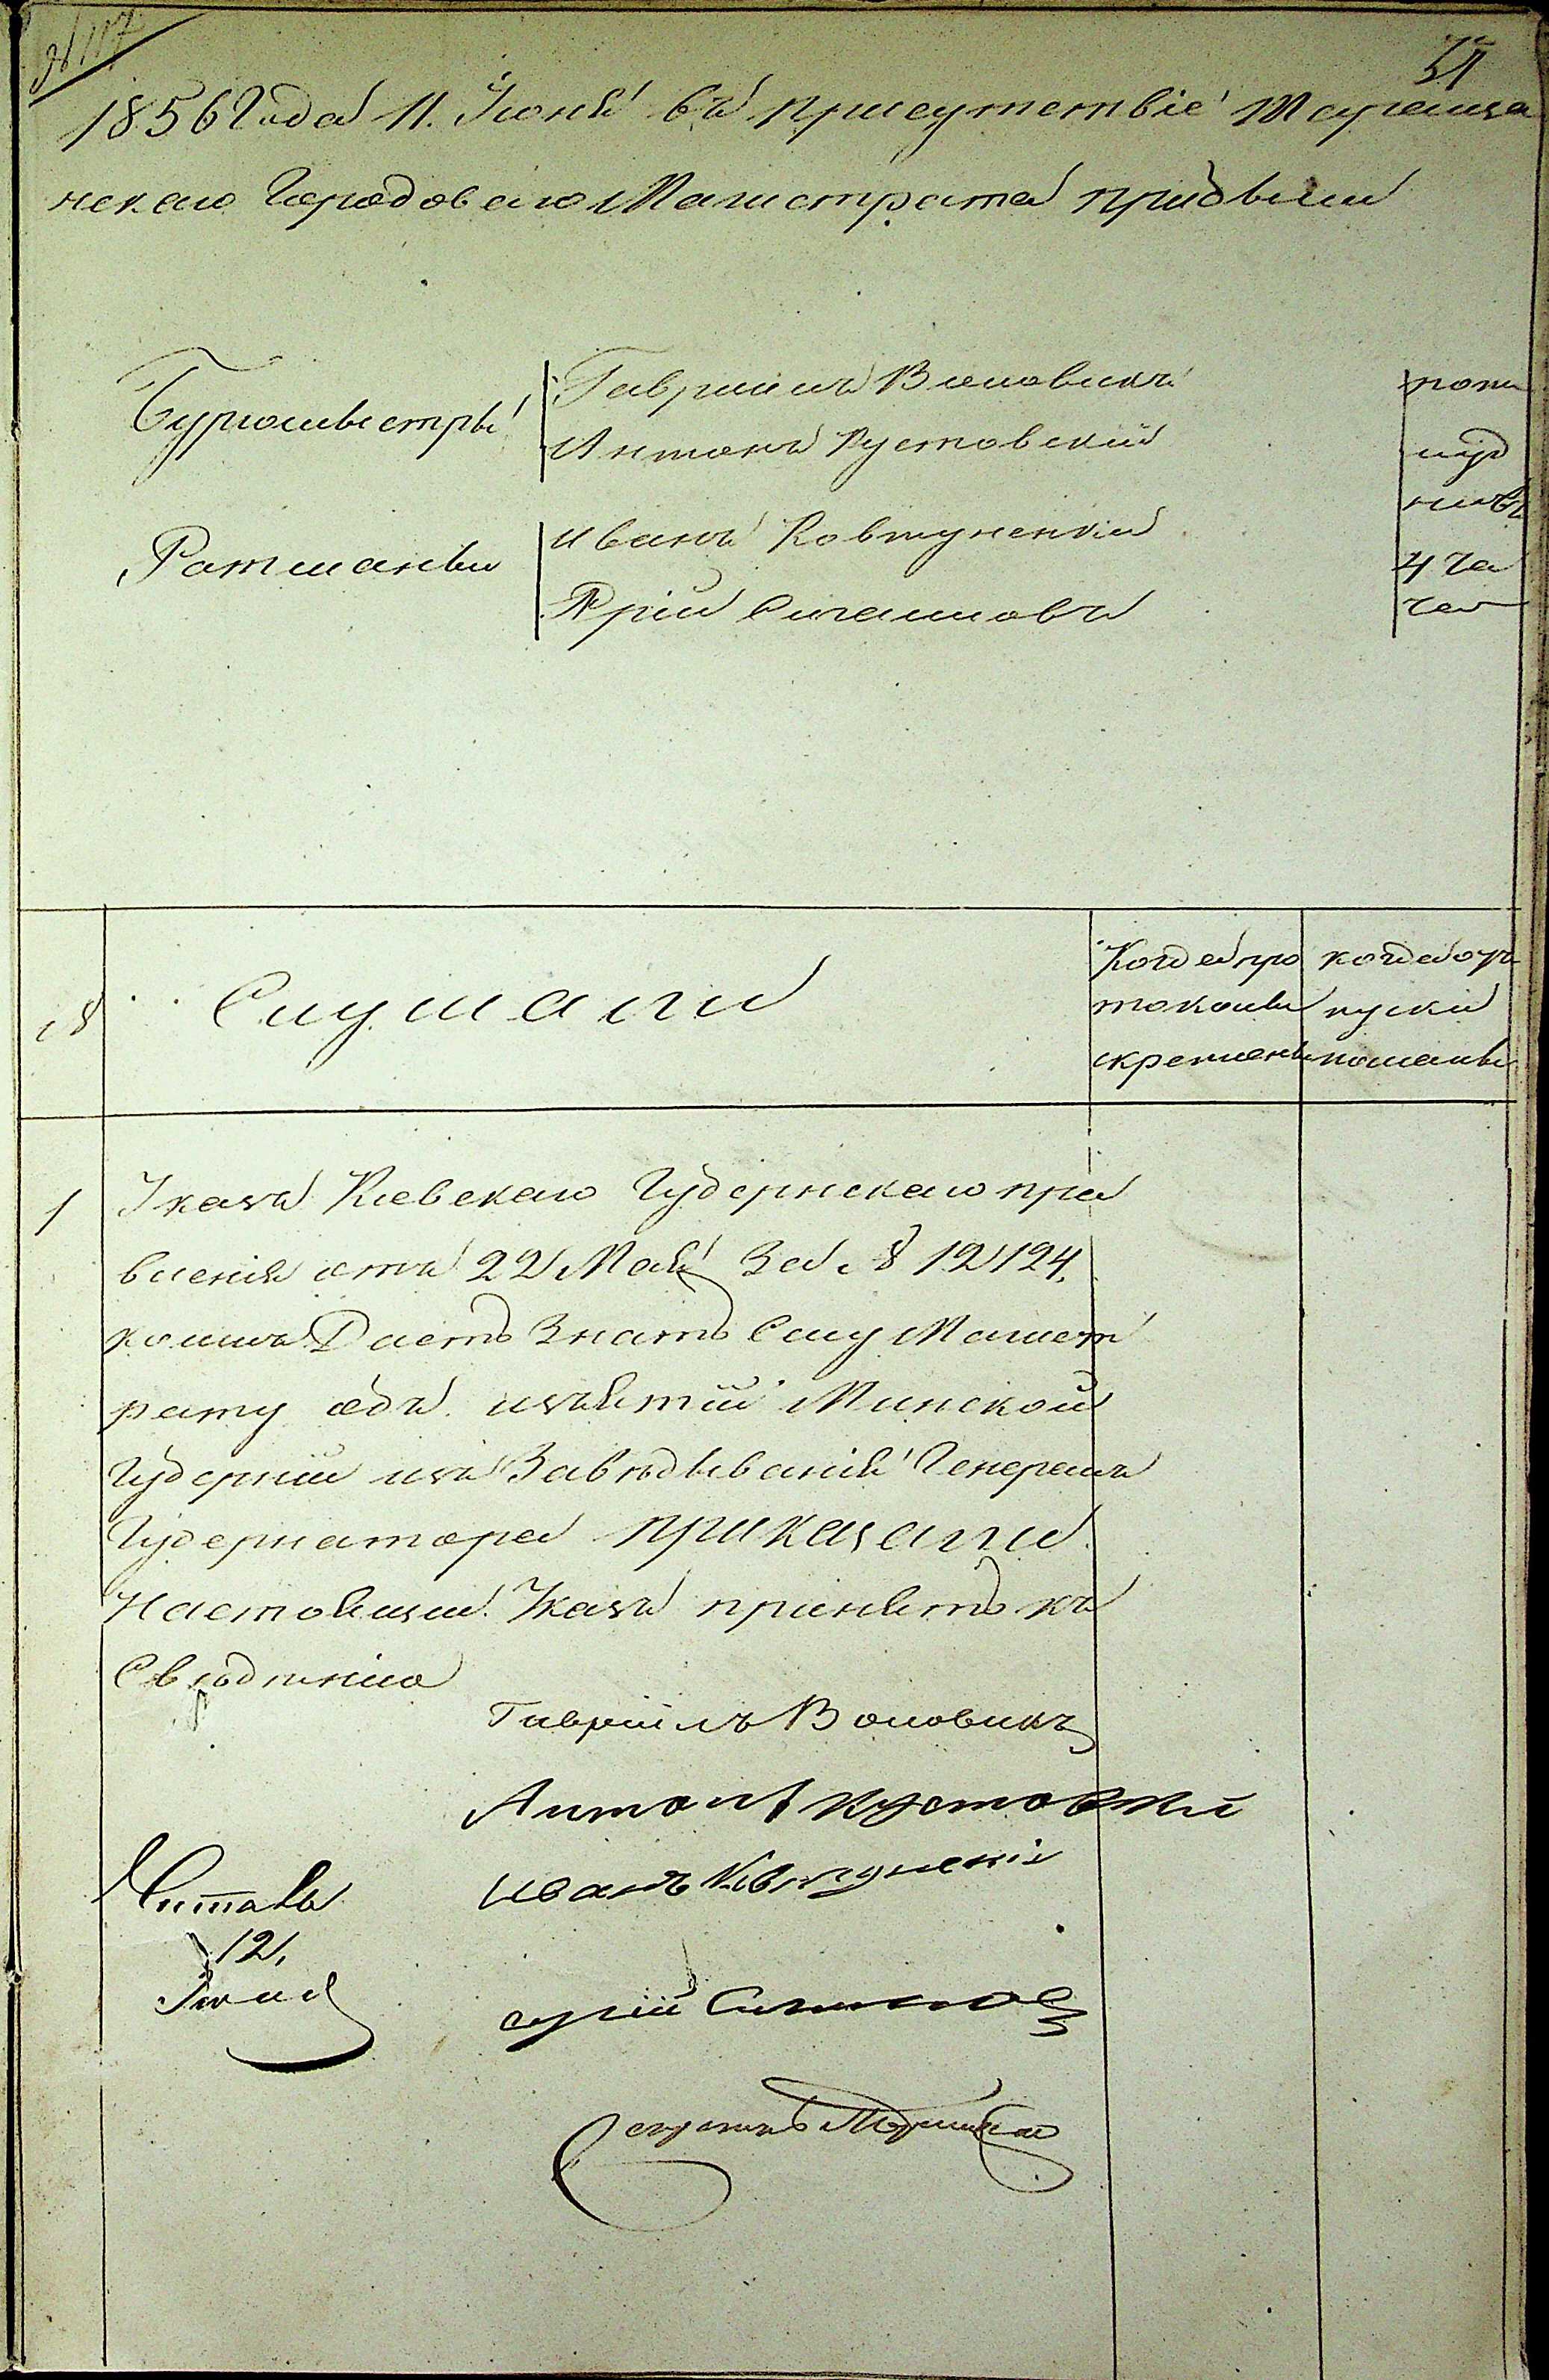 № 117
51
1856 Года 11. Іюня въ присутствіе Тараща
нскаго Городоваго Магистрата придвыли
Бургомыстры
Гаврыилъ Воловикъ
Антонъ Кустовский
Ратманы
Иванъ Ковтуненкій
Юрій Сигалловъ
попо
луд
ны въ
4 ча
са
№
Слушали
Когда про
токолы
скреплены
когда от
пуски
посланы
1
Указъ Киевскаго Губернскаго пра
вления отъ 22 Мая За № 12124,
коимъ Даетъ Знать Сему Магист
рату объ изъятіи Минской
Губерніи изъ Завѣдыванія Генералъ
Губернатора приказали
Настоящий Указъ принять къ
Свѣдѣнію
Гавріилъ Воловикъ
Антонъ Кустовский
Иванъ Ковтуненкій
Читалъ
12,
Іюня
Юрій Сигаловъ
Секретарь